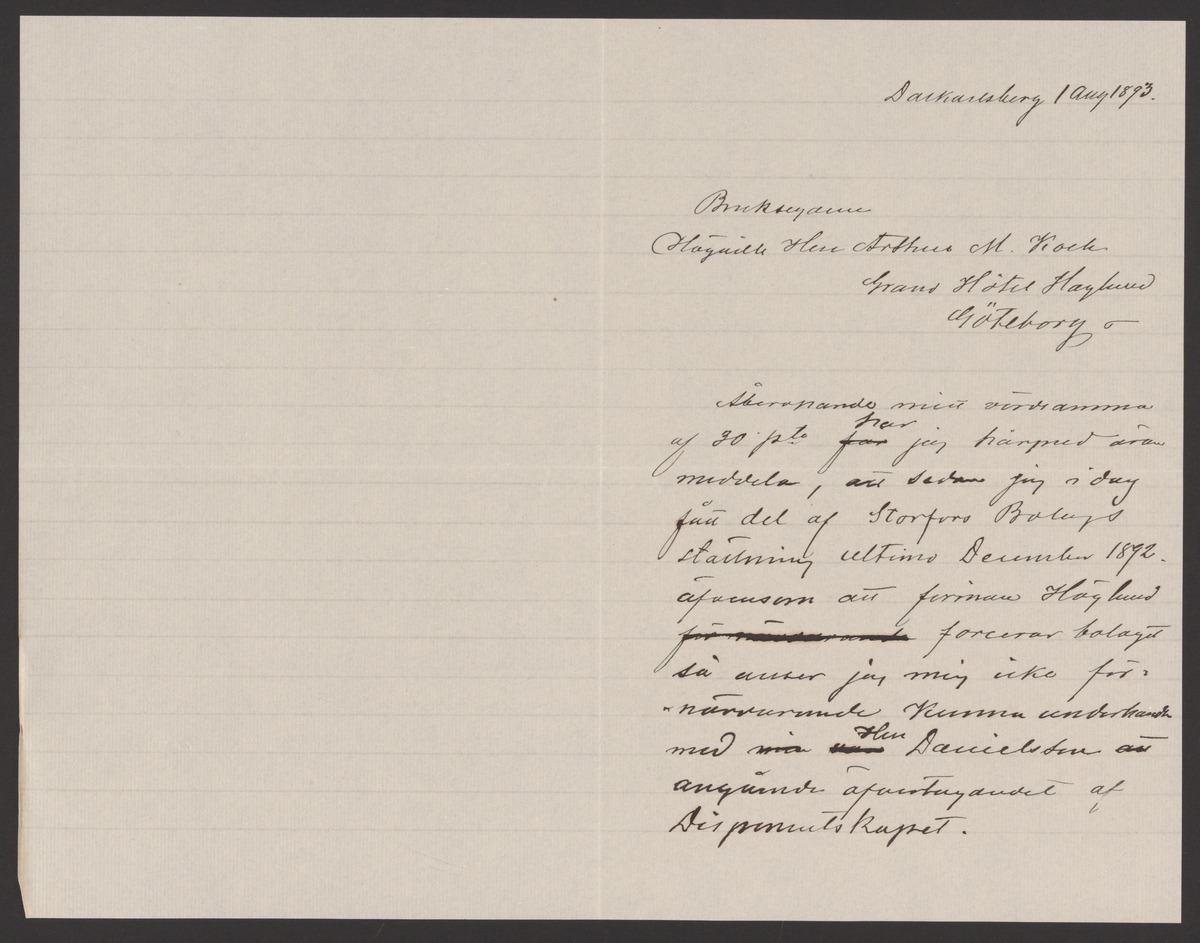 Dalkarlsberg 1 Aug 1893.
Bruksegaren
Högädle Herr Arthur M. Koch
Grand Hôtel Haglund
Göteborg
Åberopande mitt vördsamma
af 30 pto ~~får~~ har jag härmed äran
meddela, att sedan jag i dag
fått del af Storfors Bolags
ställning ultimo December 1892.
äfvensom att firman Höglund
~~för närvarande~~ forcerar bolaget
så anser jag mig icke för-
närvarande kunna underhandla
med Herr Danielsson
angående öfvertagandet af
Disponentskapet.